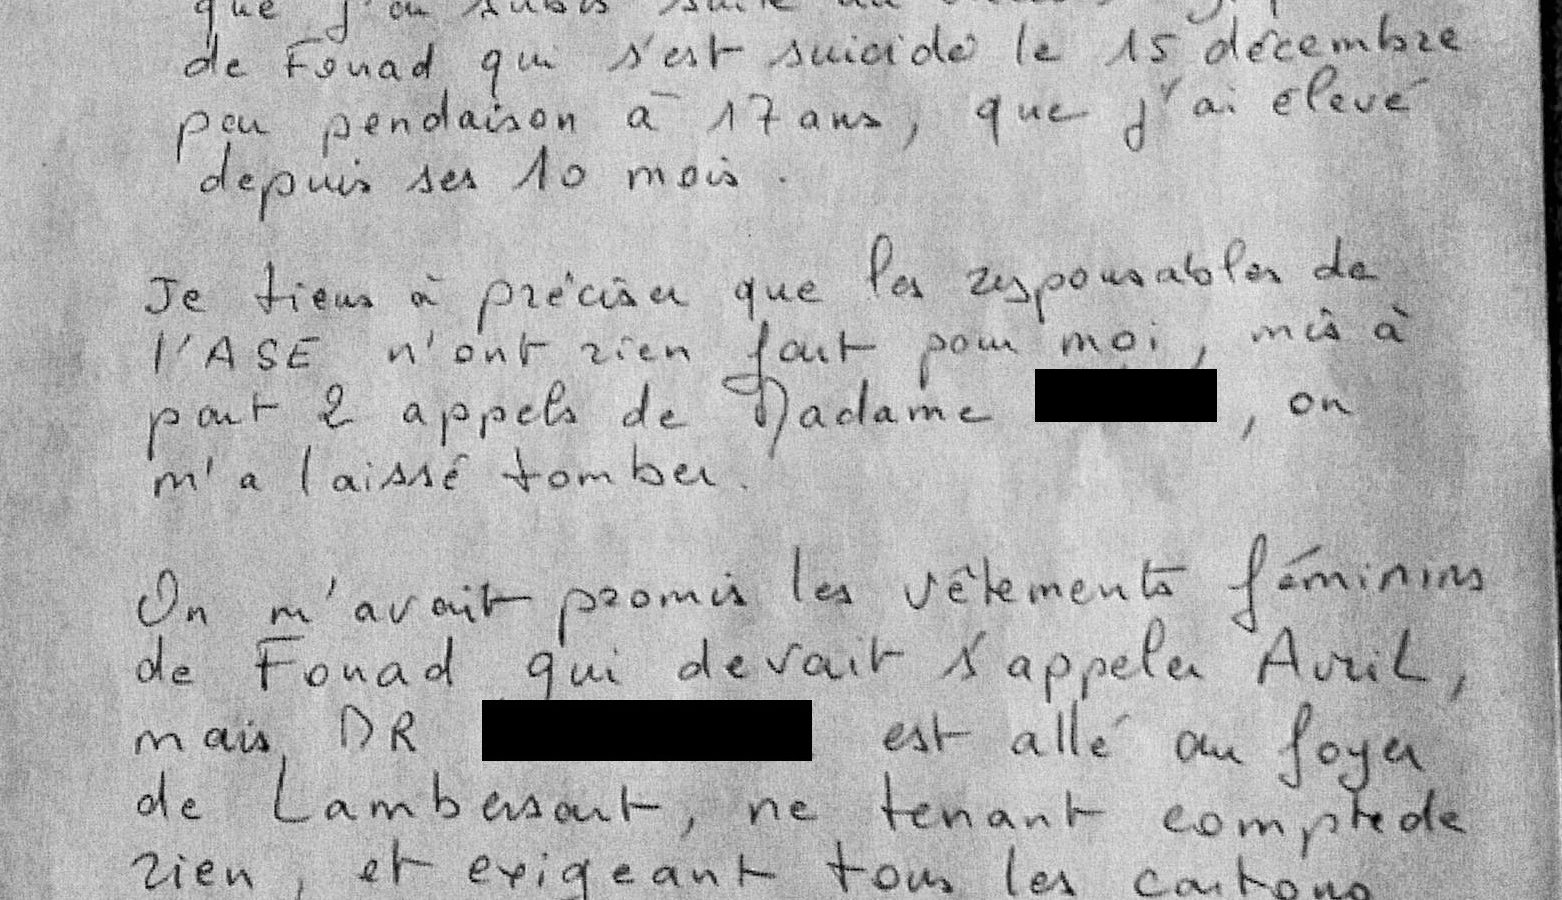 que j'ai subis suite au
de Fouad qui s'est suicidé le 15 décembre
par pendaison à 17 ans, que j'ai élevé
depuis ses 10 mois.
Je tiens à préciser que les responsables de
l'ASE n'ont rien fait pour moi, mis à
part 2 appels de Madame , on
m'a laissé tomber.
On m'avait promis les vêtements féminins
de Fouad qui devait s'appeler Avril,
mais DR est allé au foyer
de Lambersart, ne tenant compte de
rien, et exigeant tous les cartons